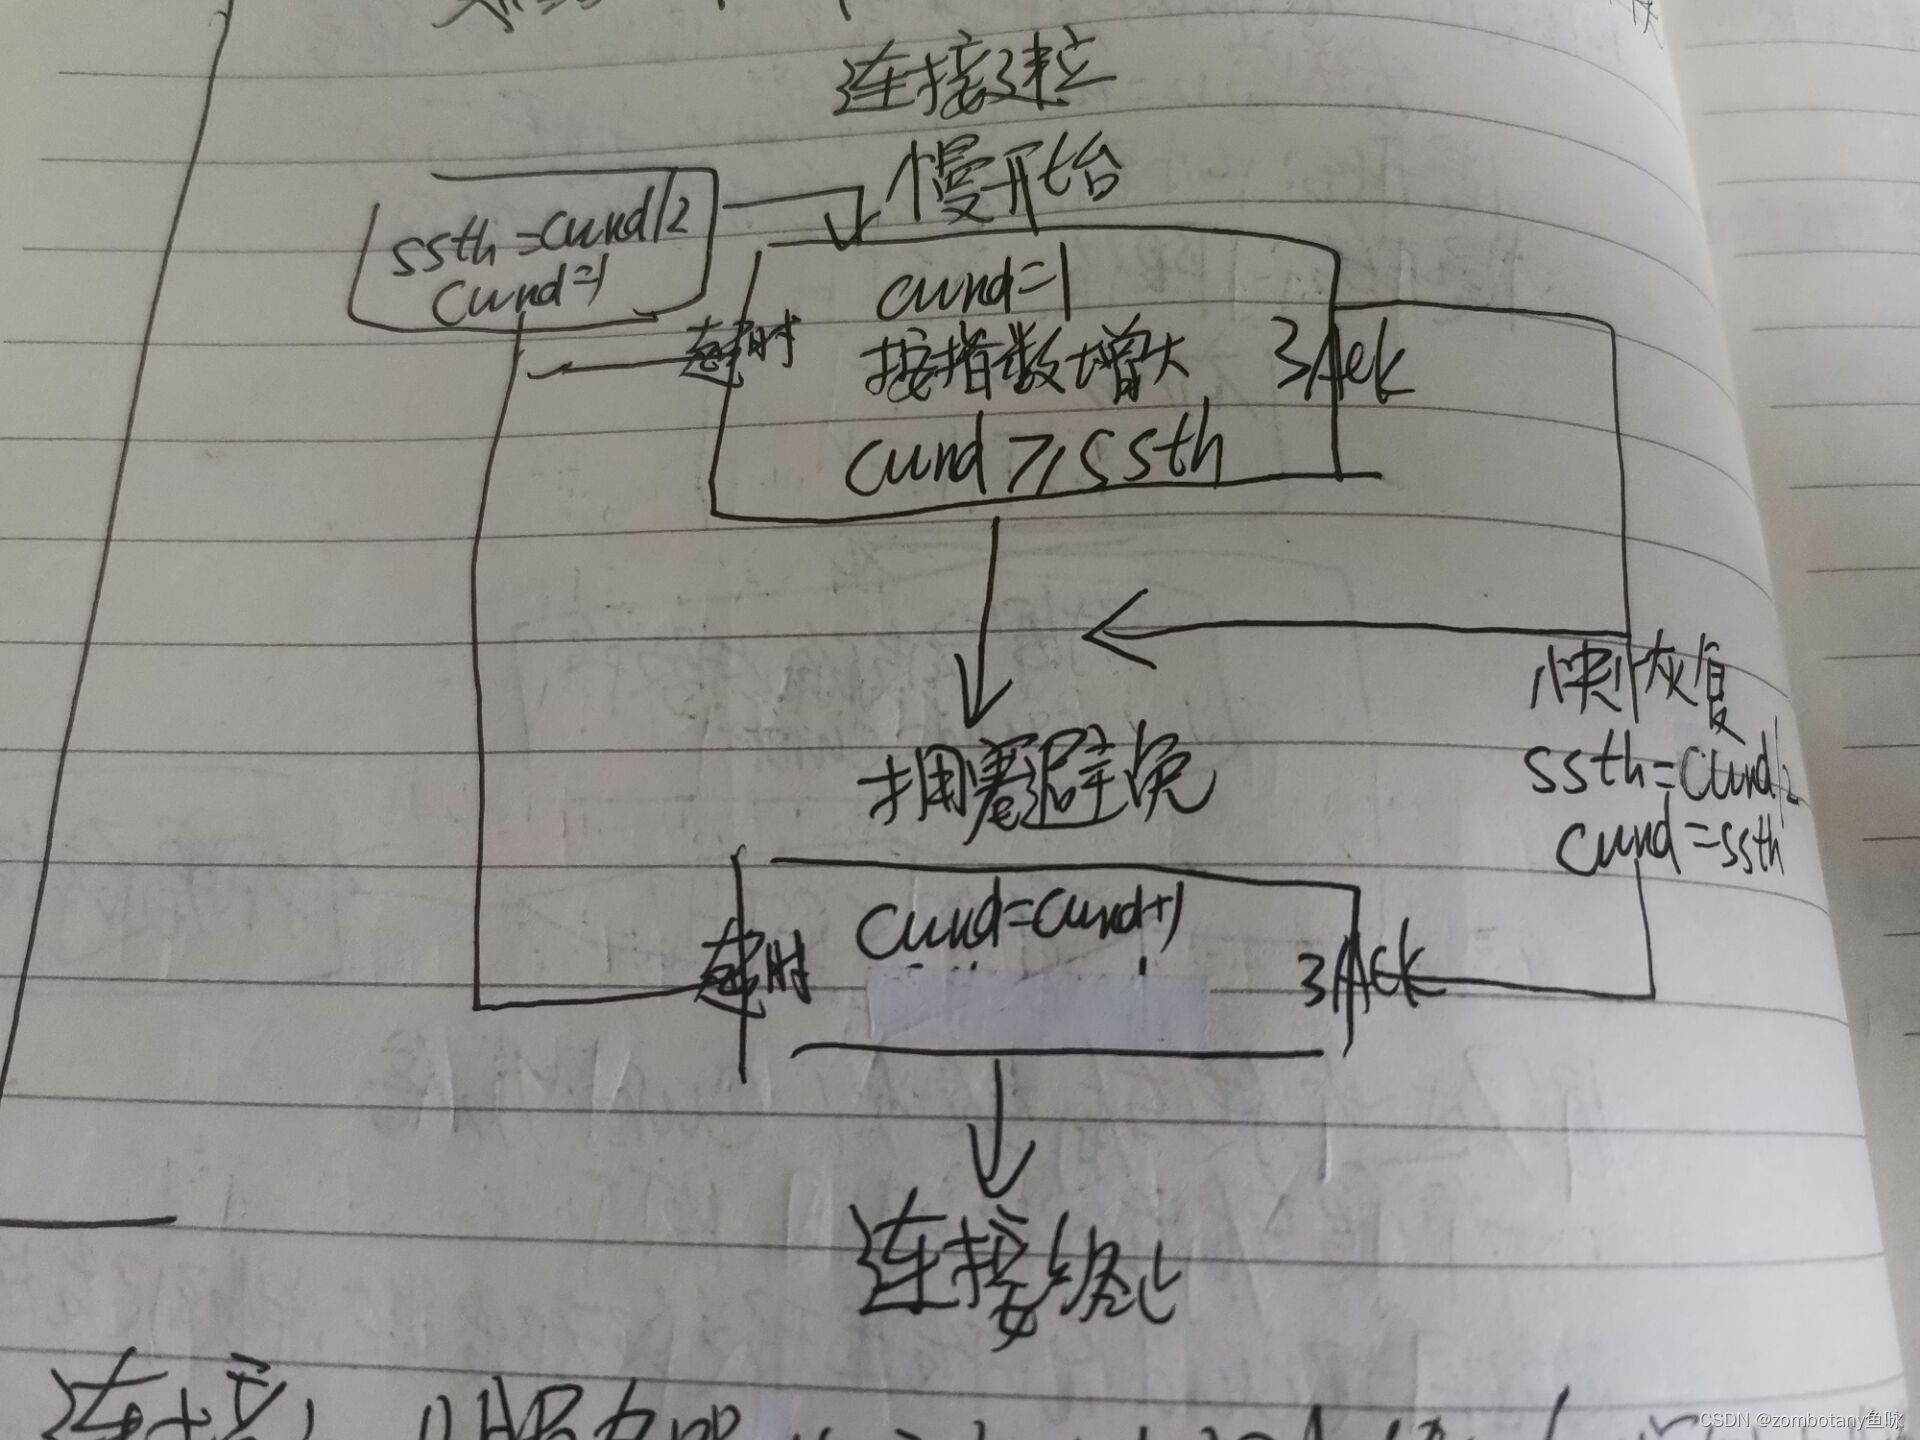 连接建立
慢开始
ssth=cwnd/2
cwnd=1
cwnd=1
超时
按指数增大
3Ack
cwnd≥ssth
快恢复
ssth=cwnd/2
cwnd=ssth
拥塞避免
cwnd=cwnd+1
超时
3Ack
连接终止
连接
CSDN @zombotany鱼咏